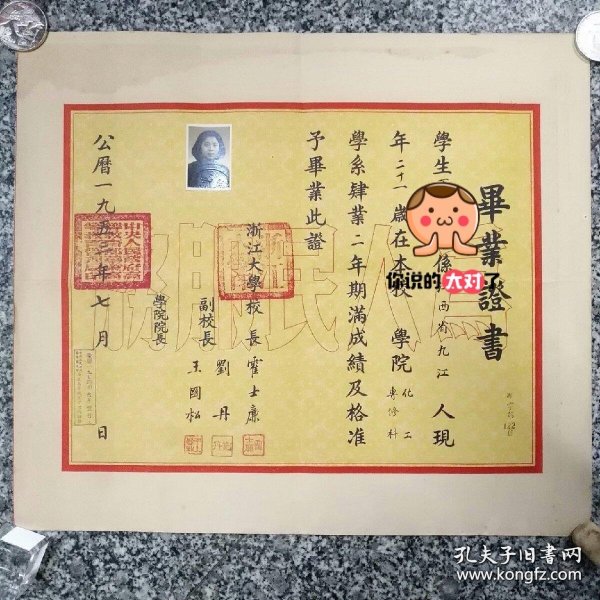 畢業證書
學生
係
西省九江
人現
年二十一歲在本校
學院
化工
專修科
學系肄業二年期滿成績及格准
予畢業此證
浙江大學校長霍士廉
副校長劉丹
王國松
學院院長
公曆一九五三年七月
日
為人民服務
你说的太对了
孔夫子旧书网
www.kongfz.com